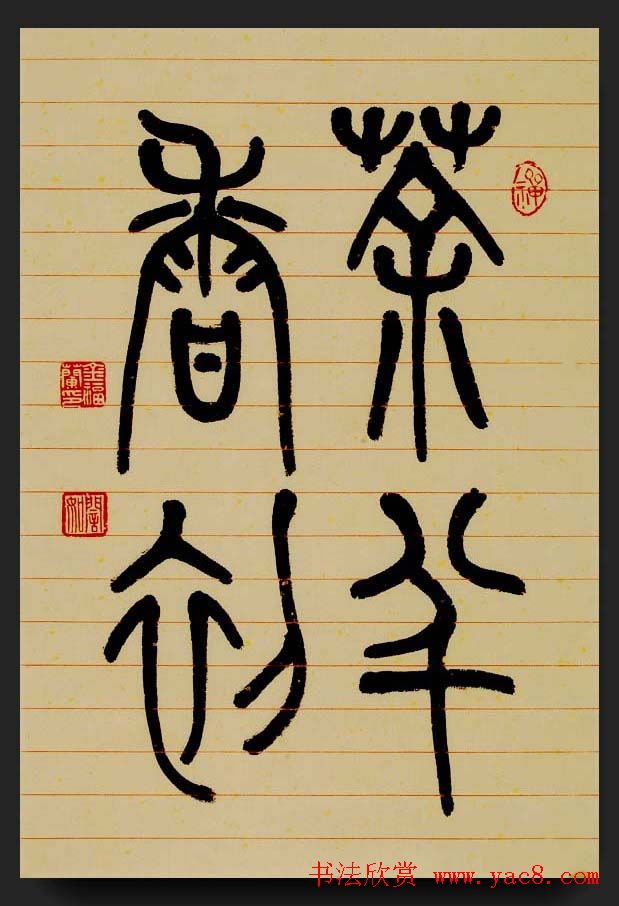 茶半
香初
书法欣赏 www.yac8.com